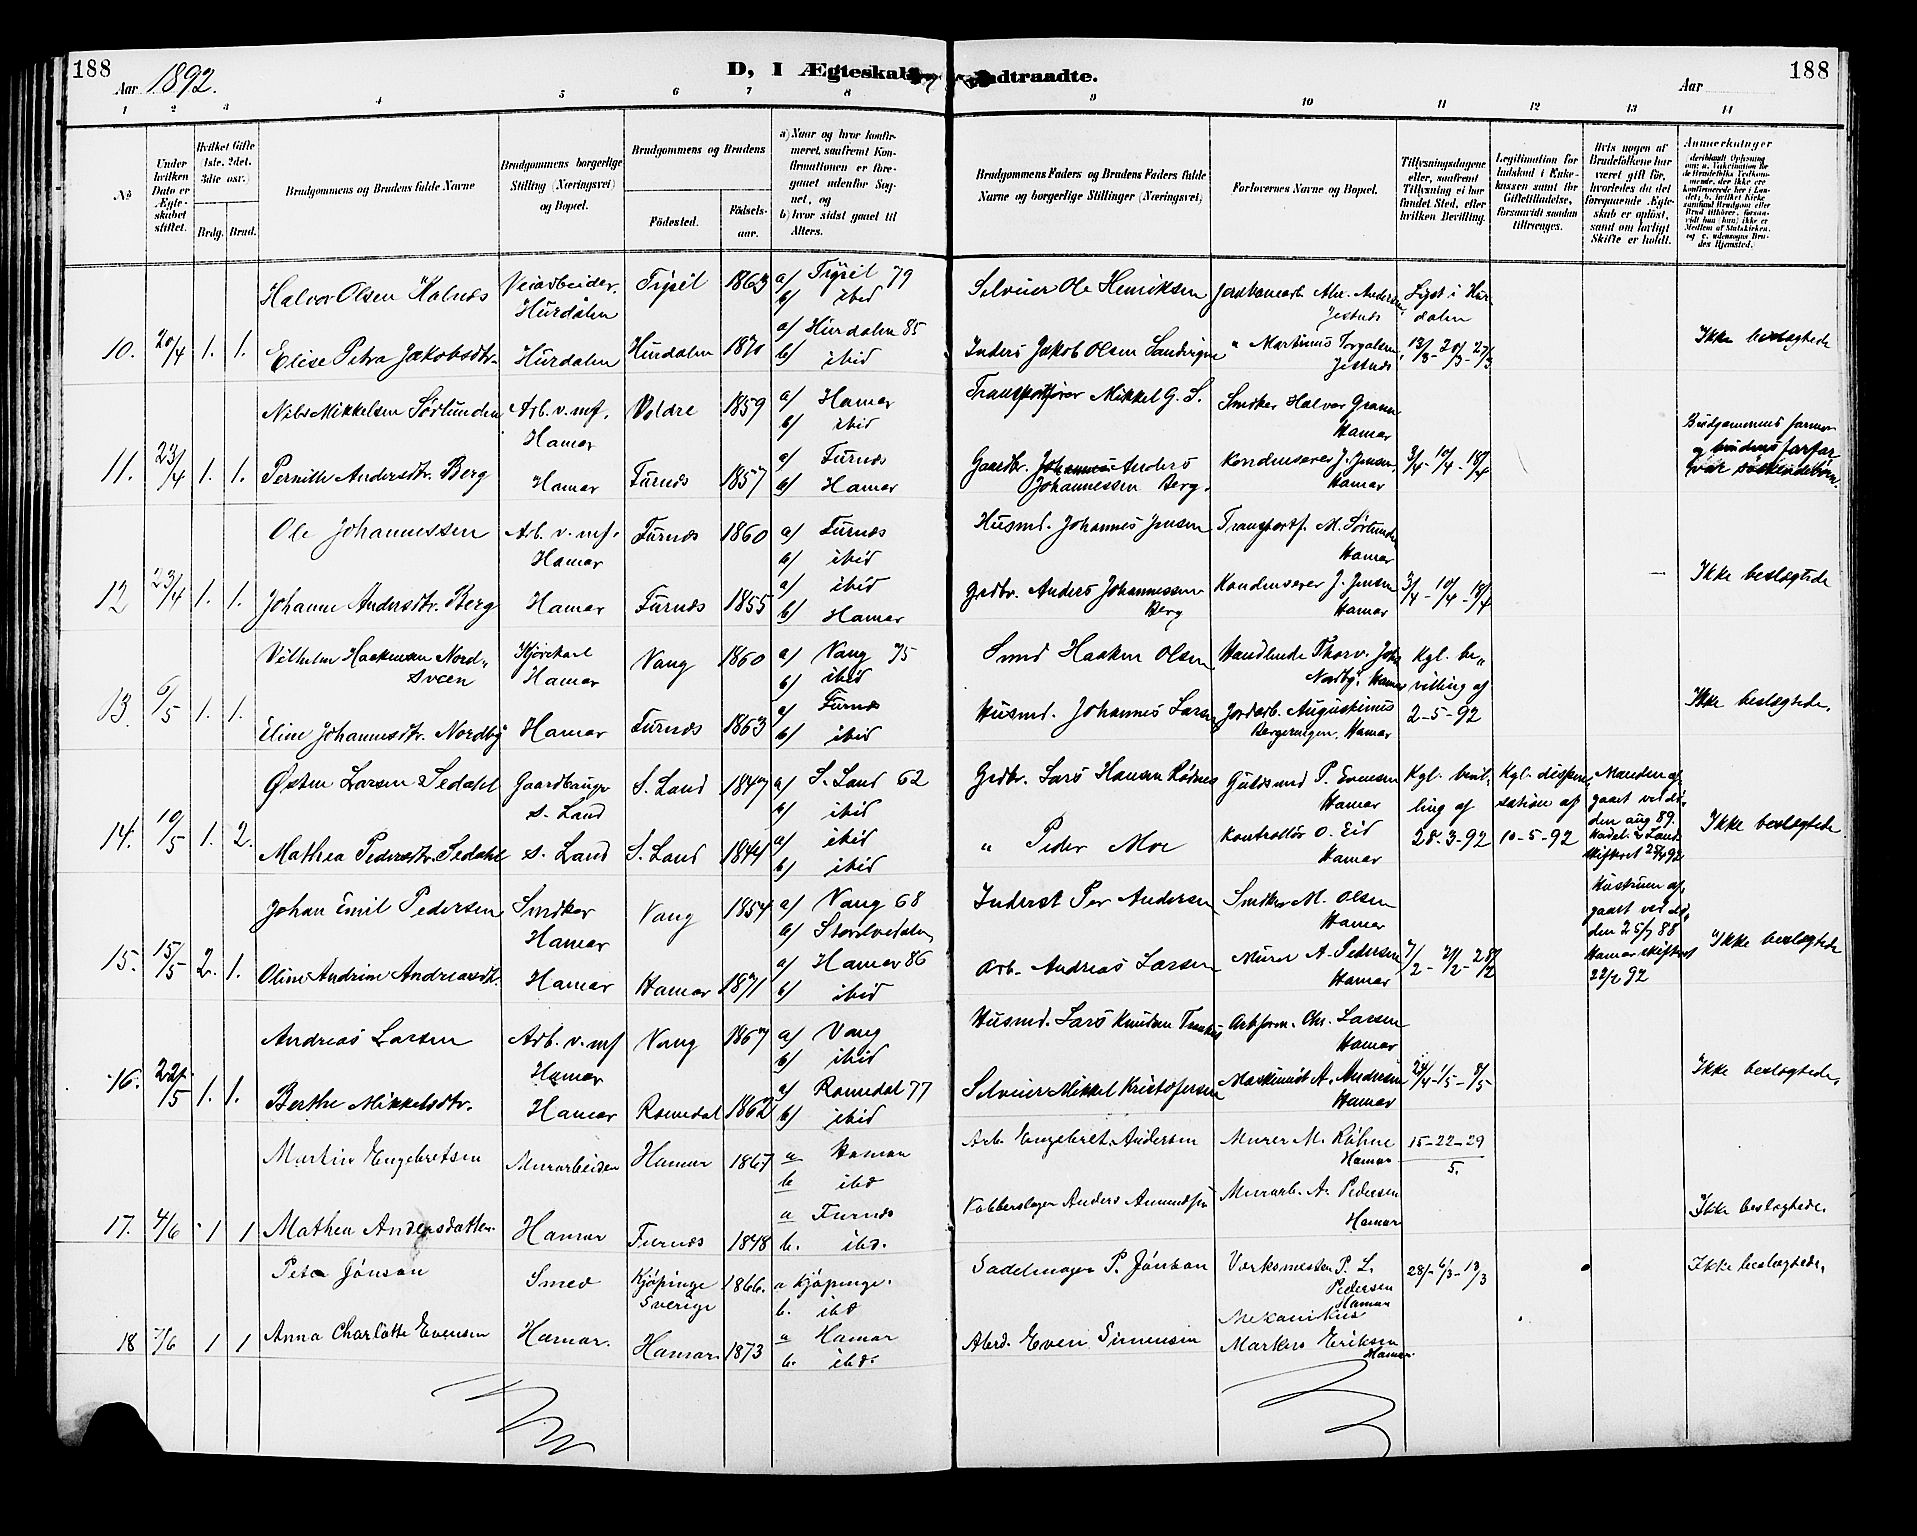 188
D, I Ægteskab Indtraadte.
188
Aar 1892.
Aar
1 2 3 4 5 6 7 8 9 10 11 12 13 14
No
Under hvilken Dato er Ægteskabet stiftet.
Hvilket Gifte (1ste, 2det, 3die osv.)
Brdg. Brud.
Brudgommens og Brudens fulde Navne
Brudgommens borgerlige Stilling (Næringsvei) og Bopæl.
Brudgommens og Brudens
Fødested.
Fødselsaar.
a) Naar og hvor konfirmeret, saafremt Konfirmationen er foregaaet udenfor Sognet, og
b) hvor sidst gaaet til Alters.
Brudgommens Faders og Brudens Faders fulde Navne og borgerlige Stillinger (Næringsvei)
Forlovernes Navne og Bopæl.
Tillysningsdagene eller, saafremt Tillysning ei har fundet Sted, efter hvilken Bevilling.
Legitimation for Indskud i Enkekassen samt for Giftetilladelse, forsaavidt saadan tiltrænges.
Hvis nogen af Brudefolkene har været gift før, hvorledes da det foregaaende Ægteskab er opløst, samt om lovligt Skifte er holdt.
Anmærkninger
Halvor Olsen Veiarbeider Trysil 1863 a) Trysil 79 Selveier Ole Henriksen
Hurdalen b) ibid Lyst i Hurdalen
10. 20/4 1. 1. Elise Petra Jakobsdtr. Hurdalen Hurdalen 1870 a) Hurdalen 85 b) ibid Inders Jakob Olsen 13/3-20/3-27/3 Ikke beslægtede
Nils Mikkelsen Sørlunden Arb. v. mf. Hamar Voldre 1859 a) Hamar b) ibid Transportfører Mikkel G. S. Snedker Halvor Hamar
11. 23/4 1. 1. Pernille Andersdtr. Berg Hamar Furnæs 1857 a) Furnæs b) Hamar Gaardbr. Anders Johannessen Berg. Kondensører J. Jensen, Hamar 3/4-10/4-18/4 Brudgommens farmor og brudens farfar var søskendebørn.
Ole Johannessen Arb. v. mf. Hamar Furnæs 1860 a) Furnæs b) ibid Husmd. Johannes Jensen Transportf. M. Sørlunden Hamar
12 23/4 1. 1. Johanne Andersdtr. Berg Hamar Furnæs 1855 a) ibid b) Hamar Grdbr. Anders Johannessen Berg Kondensører J. Jensen Hamar 3/4-10/4-18/4 Ikke beslægtede
Vilhelm Haakensen Nordsveen Kjørekarl Hamar Vang 1860 a) Vang 75 b) ibid Smed Haaken Olsen Handlende Thorv. Joh. Nordby, Hamar Kgl. bevilling af
13. 6/5 1. 1. Eline Johannesdtr. Nordby Hamar Furnæs 1863 a) Furnæs b) ibid Husmd. Johannes Larsen Jordarb. Augustinus Bergeringen, Hamar 2-5-92 Ikke beslægtede.
Østen Larsen Sedahl Gaardbruger S. Land S. Land 1847 a) S. Land 62 b) ibid Grdbr. Lars Hansen Rødnes Guldsmed P. Evensen Hamar Kgl. bevilling af Kgl. dispensation af Manden afgaaet ved døden aug 89.
14. 10/5 1. 2. Mathea Pedersdtr. Sedahl S. Land S. Land 1844 a) ibid b) ibid " Peder Moe Kontrollør O. Eid Hamar 28-3-92 10-5-92 Skifteret 25/4 92 Ikke beslægtede
Johan Emil Pedersen Snedker Hamar Vang 1854 a) Vang 68 Storelvedalen Inderst Per Andersen Snedker M. Olsen Hamar Hustruen afgaaet ved døden 25/7 88
15. 15/5 2. 1. Oline Andrine Andreasdtr. Hamar Hamar 1871 a) Hamar 86 b) ibid Arb. Andreas Larsen Murer A. Pedersen Hamar 7/2-21/2-28/2 Hamar skifteret 22/2 92 Ikke beslægtede
Andreas Larsen Arb. v. mf Hamar Vang 1867 a) Vang b) ibid Husmd. Lars Knudsen Arbform. Chr. Larsen Hamar
16. 22/5 1. 1. Berthe Mikkelsdtr. Hamar Romedal 1862 a) Romedal 77 b) ibid Selveier Mikkel Kristofersen Maskinist A. Andresen Hamar 24/4-1/5-8/5 Ikke beslægtede.
Martin Engebretsen Murarbeider Hamar 1867 a Hamar b ibd Arb. Engebret Andersen Murer M. Røhne Hamar 15-22-29 5.
17. 4/6 1 1 Mathea Andersdatter Hamar Furnæs 1848 a Furnæs b. ibd. Kobberslager Anders Amundsen Murarb. A. Pedersen Hamar Ikke beslægtede.
Peter Jönson Smed Kjöpinge Sverige 1866. a Kjöpinge. b. ibd Sadelmager P. Jönson Værksmester P. L. Pedersen Hamar 28/-6/3-13/3 Ikke beslægtede.
18 7/6 1 1 Anna Charlotte Evensen Hamar. Hamar. 1873 a Hamar b. ibd. Even Simensen Mekanikus Markus Eriksen Hamar.